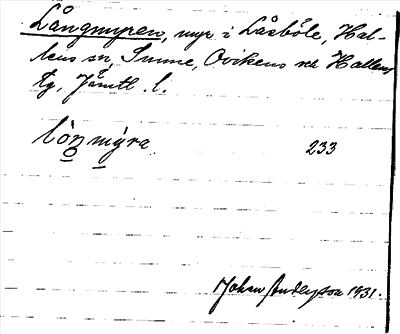 Långmyren, myr i Låsböle, Hal-
lens sn, Sunne, Ovikens och Hallens
tg, Jämtl. l.
lòn̥mýra. 233
Johan Anderson 1931.